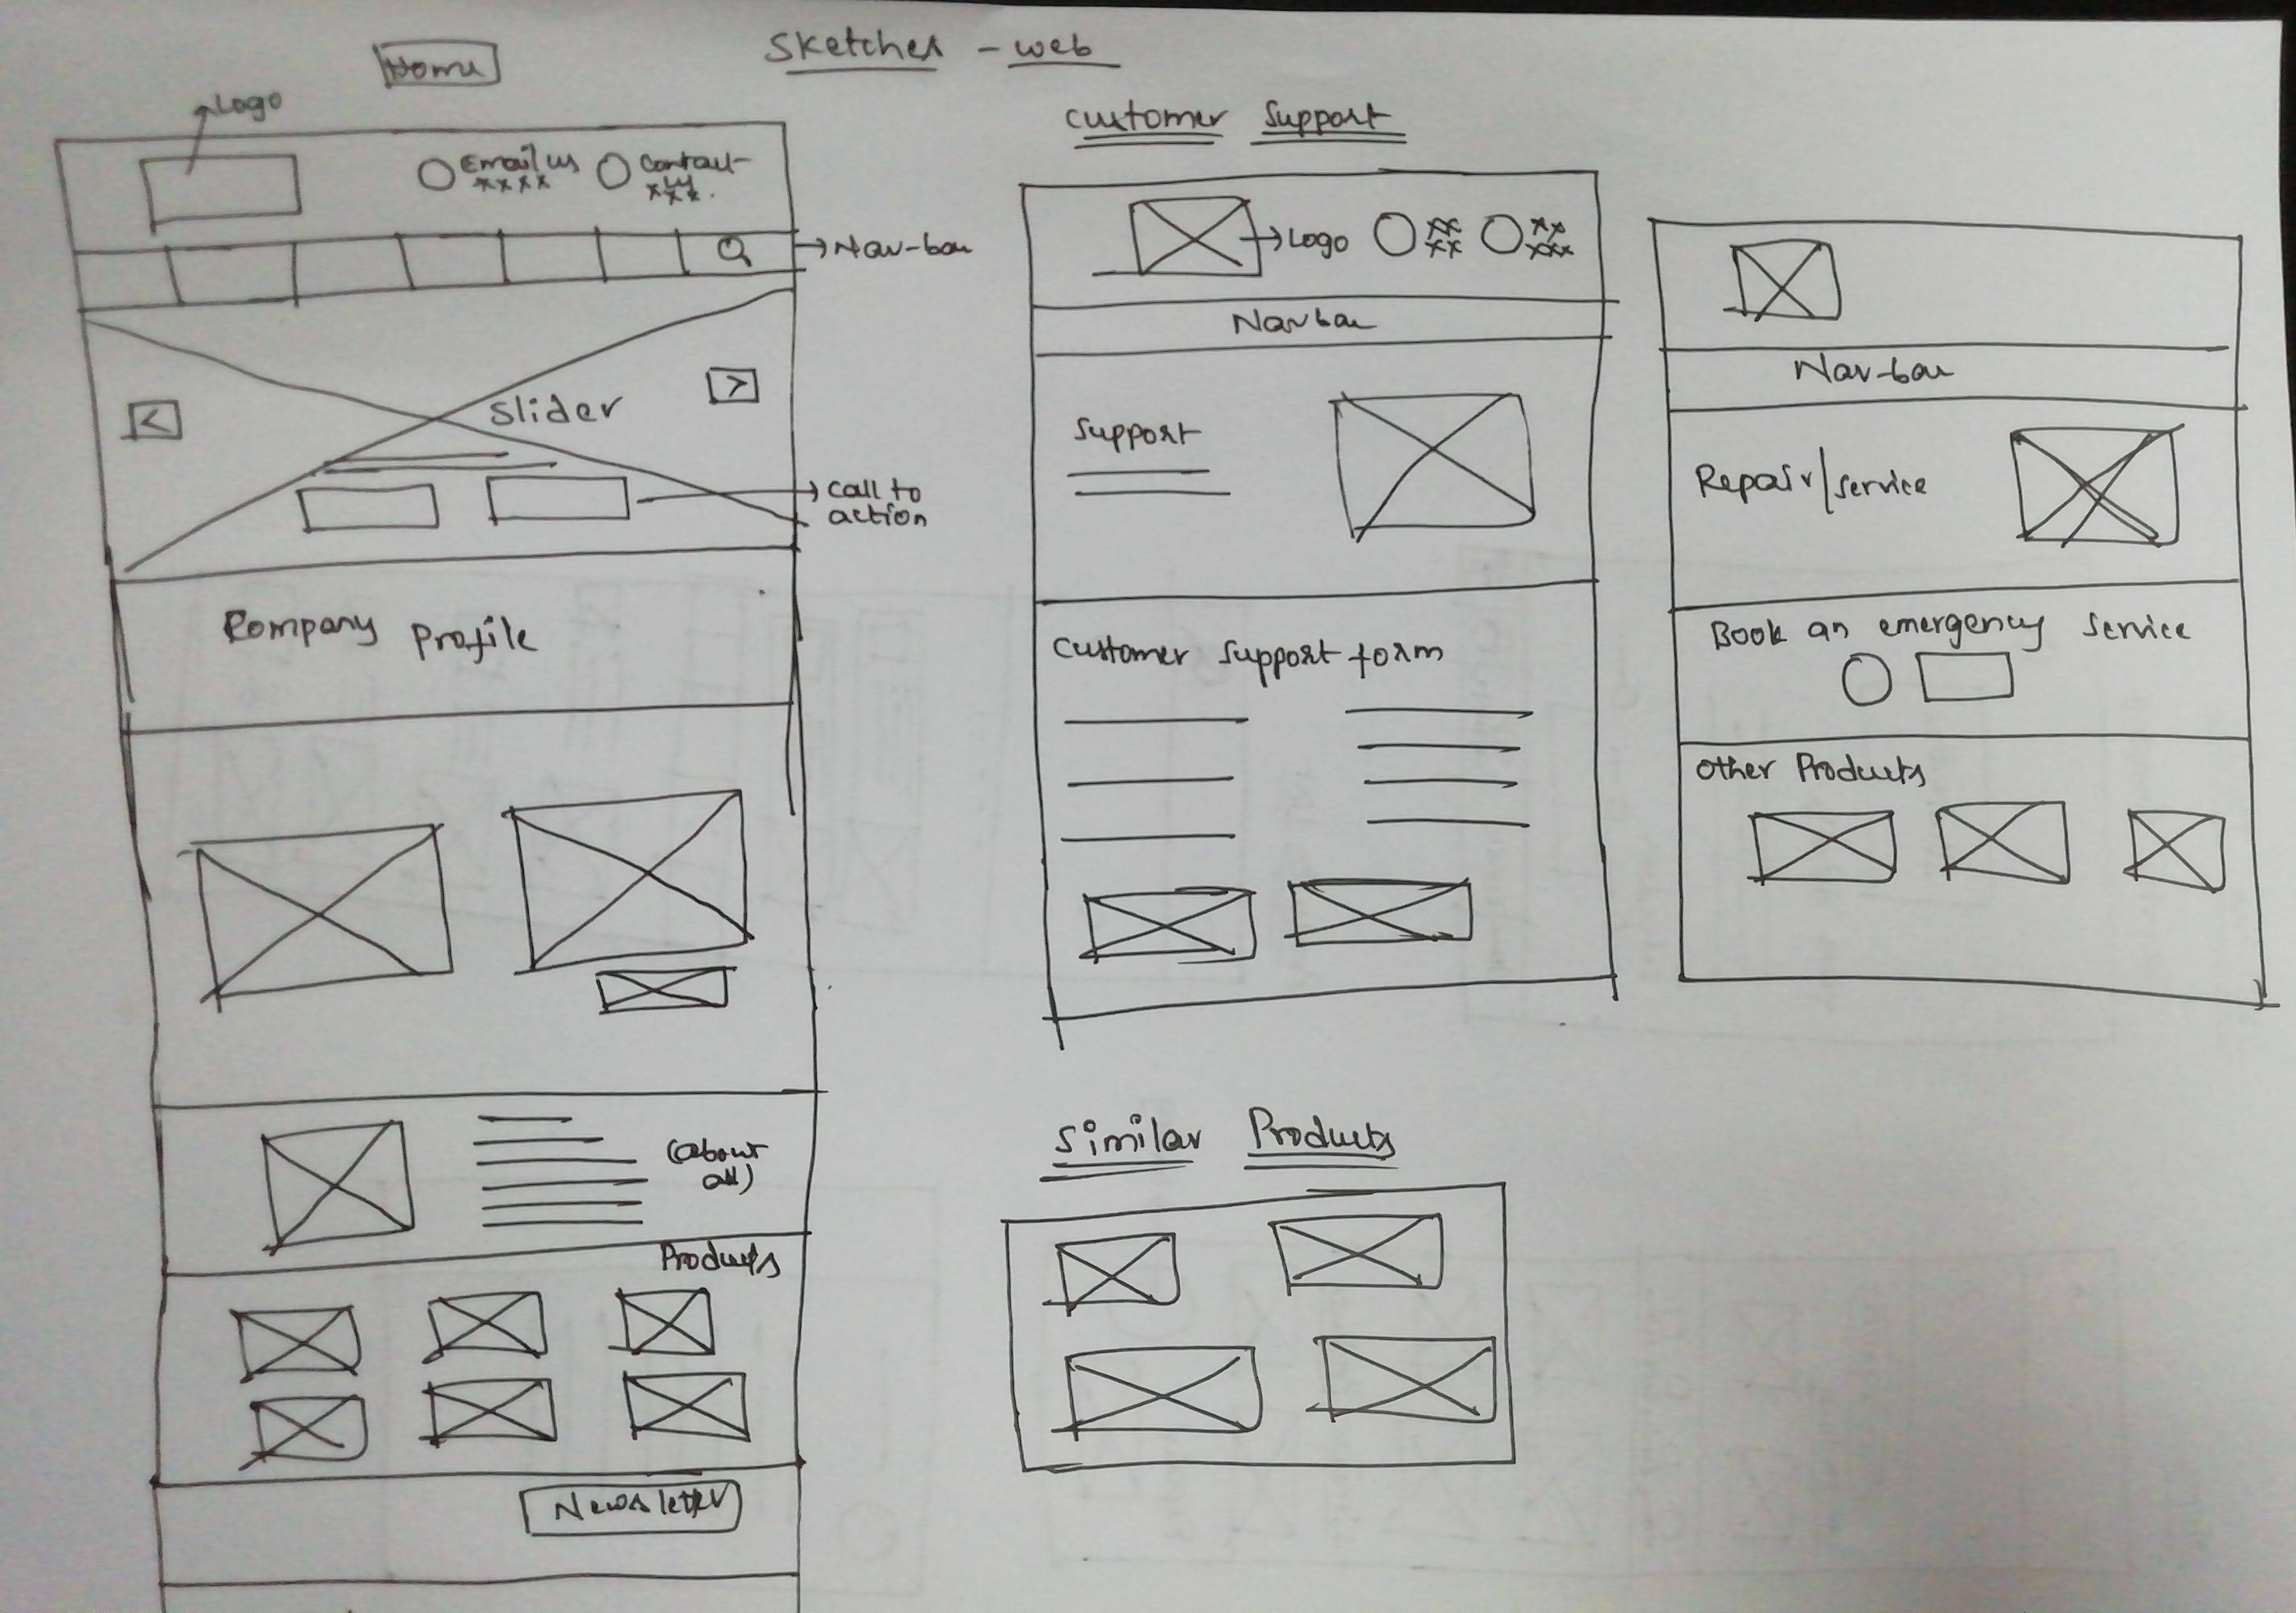 Sketches - web
Home
Logo
Email us
xxxx
Contact
us
xxx.
Nav-bar
<
Slider
>
Call to
action
Company Profile
(about
all)
Products
Newsletter
Customer Support
Logo
xx
xx
xx
xxx
Navbar
Support
Customer Support form
Nav-bar
Repair/service
Book an emergency service
Other Products
Similar Products